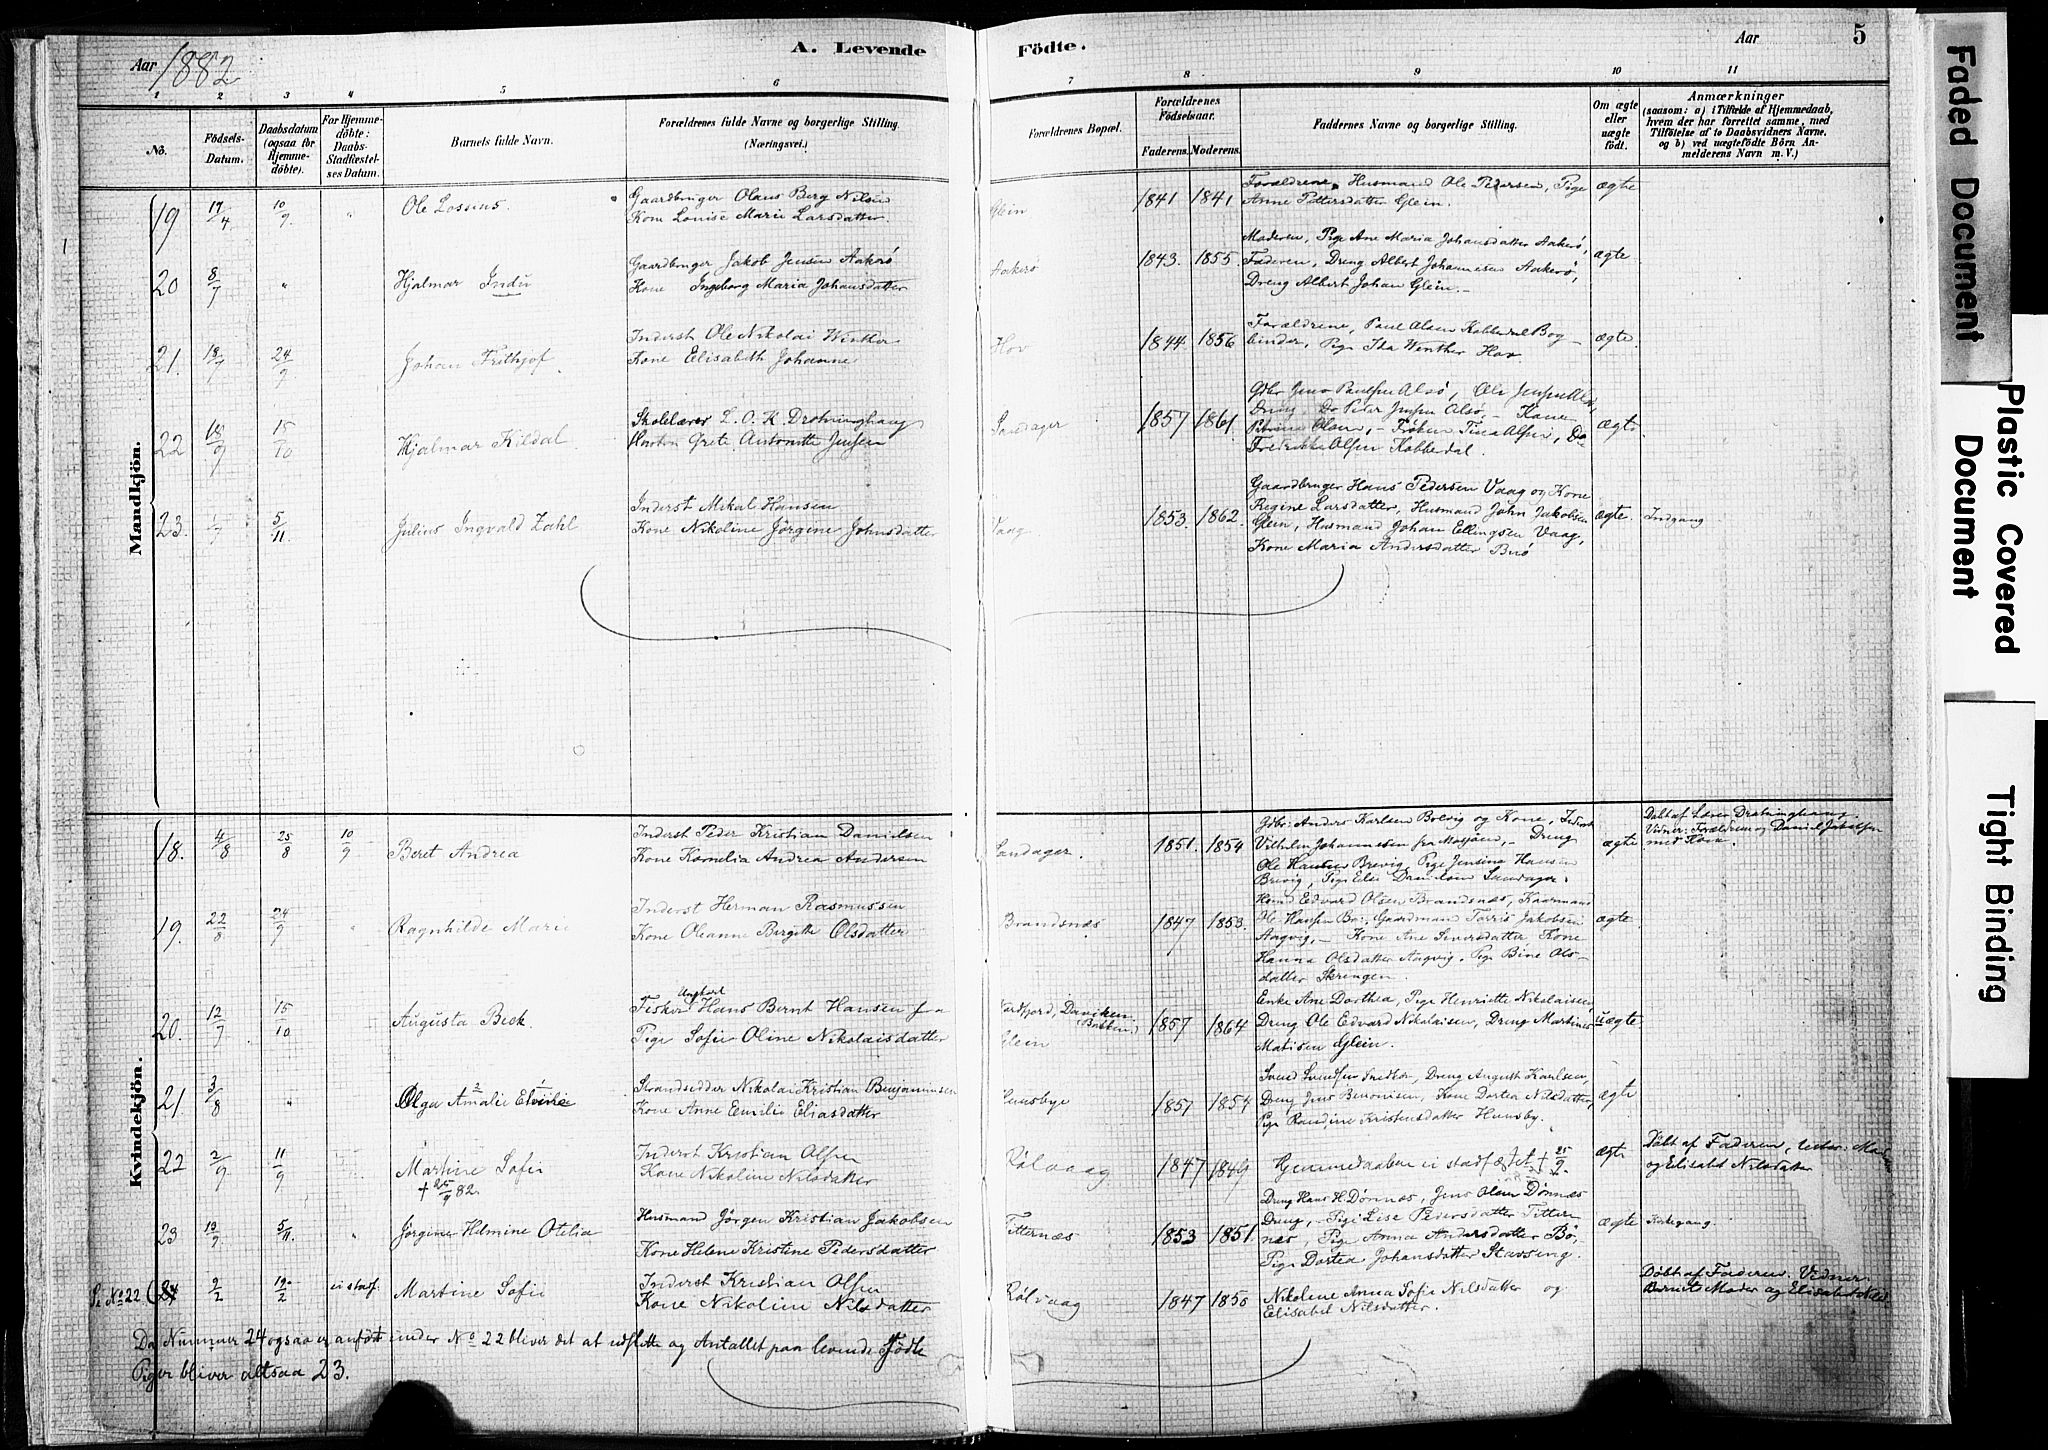 Aar 1882
A. Levende Födte.
Aar 5
1 2 3 4 5 6 7 8 9 10 11
No.
Födsels-Datum.
Daabsdatum (ogsaa for Hjemme-döbte).
For Hjemme-döbte: Daabs-Stadfæstel-ses Datum.
Barnets fulde Navn.
Forældrenes fulde Navne og borgerlige Stilling. (Næringsvei.)
Forældrenes Bopæl.
Forældrenes Födselsaar.
Faderens. Moderens.
Faddernes Navne og borgerlige Stilling.
Om ægte eller uægte födt.
Anmærkninger
(saasom: a) i Tilfælde af Hjemmedaab, hvem der har forrettet samme, med Tilföielse af to Daabsvidners Navne, og b) ved uægtefödte Börn An-melderens Navn m. V.)
Mandkjön.
19 17/4 10/9 " Ole Lossius
Gaardbruger Olaus Berg Nilsen
Kone Louise Marie Larsdatter.
Glein 1841 1841
Forældrene, Husmand Ole Pedersen, Pige
Anne Pettersdatter Glein.
ægte
20 8/7 " Hjalmar Indu
Gaardbruger Jakob Jensen Aakerö
Kone Ingeborg Maria Johansdatter
Aakerö 1843. 1855
Moderen, Pige Ane Maria Johansdatter Aakerö,
Faderen, Dreng Albert Johannesen Aakerö,
Dreng Albert Johan Glein.
ægte
21. 18/7 24/9 Johan Frithjof
Inderst Ole Nikolai Winther
Kone Elisabeth Johanne
Hov 1844. 1856
Forældrene, Paul Olsen Kobberdal Bog-
binder, Pige Ida Winther Hov
ægte.
22 18/9 15/10 Hjalmar Kildal
Skolelærer L. O. K. Drotninghaug
Hustru Grete Antonette Jensen
Sandager 1857 1861
Gdbr Jens Paulsen Alsö, Ole Jensen Alsö,
Dreng, Do Peter Jensen Alsö, - Kone
Petrina Olsen, - Fröken Tina Olsen, Do
Fredrikke Olsen Kobberdal.
ægte
23. 1/7 5/11 Julius Ingvald Zahl
Inderst Mikal Hansen
Kone Nikoline Jörgine Johnsdatter
Vaag 1853. 1862.
Gaardbruger Hans Pedersen Vaag og Kone
Regine Larsdatter, Husmand John Jakobsen
Glein, Husmand Johan Ellingsen Vaag,
Kone Maria Andersdatter Buö
ægte. Indgang.
Kvindekjön.
18. 4/8 25/8 10/9 Beret Andrea
Inderst Peder Kristian Danielsen
Kone Kornelia Andrea Andersen
Sandager. 1851. 1854
Gdbr: Anders Karlsen Brevig og Kone, Inderst
Vilhelm Johannesen fra Mosjöen, - Dreng
Ole Hansen Brevig, Pige Jensina Hansen
Brevig, Pige Else Danielsen Sandager.
ægte
Döbt af Lærer Drotninghaug.
Vidner: Forældrene og Daniel Jakobsen
med Kone.
19. 22/8 24/9 " Ragnhilde Marie
Inderst Herman Rasmussen
Kone Oleanne Birgitte Olsdatter
Brandsnæs 1847 1853.
Edvard Olsen Brandsnæs, Kaarmand
Ole Hansen Bö:, Gaardmand Jakobsen
Aagvig, - Kone Ane Siversdatter, Kone
Hanna Olsdatter Aagvig. Pige Bine Ols-
datter Skringen.
ægte.
20. 12/7 15/10 Augusta Beck.
Ungkarl
Fisker Hans Bernt Hansen fra
Pige Sofie Oline Nikolaisdatter
Nordfjord, Daviken. (Bakken)
Glein 1857 1864
Enke Ane Dorthea, Pige Henriette Nikolaisen,
Dreng Ole Edvard Nikolaisen, Dreng Martines
Matisen Glein.
uægte.
21. 3/8 " Olga Amalie Elvine
Strandsidder Nikolai Kristian Benjaminsen
Kone Anne Emilie Eliasdatter
Hunsbye 1857 1854
Svend Svendsen, Dreng August Karlsen,
Dreng Jens Beronisen, Kone Dortea Nilsdatter,
Pige Randine Kristensdatter Hunsby.
ægte
22 2/9 11/9 Martine Sofie
+ 25/9 82.
Inderst Kristian Olsen
Kone Nikoline Nilsdatter
Rölvaag 1847 1849
Hjemmedaaben ei stadfæstet + 25/9.
ægte
Döbt af Faderen,
og Elisabet Nilsdatter
23 19/9 5/11. " Jörgine Helmine Otelia
Husmand Jörgen Kristian Jakobsen
Kone Helene Kristine Pedersdatter
Titternæs 1853 1851.
Dreng Hans H. Dönnæs, Jens Olsen Dönnæs
Dreng, - Pige Lise Pedersdatter Titter-
næs, Pige Anna Andersdatter Bö,-
Pige Dortea Johansdatter Stavseng.
ægte Kirkegang.
Se No 22 (24 2/2 19/2 ei stadf. Martine Sofie
Inderst Kristian Olsen
Kone Nikoline Nilsdatter
Rölvaag 1847 1850
Nikoline Anna Sofie Nilsdatter og
Elisabet Nilsdatter.
Döbt af Faderen. Vidner
Barnets Moder og Elisabet Nilsd.
Da Nummer 24 ogsaa er anfört under No 22 bliver det at udslette og Antallet paa levende Födte
Piger bliver altsaa 23.
Faded Document
Plastic Covered Document
Tight Binding